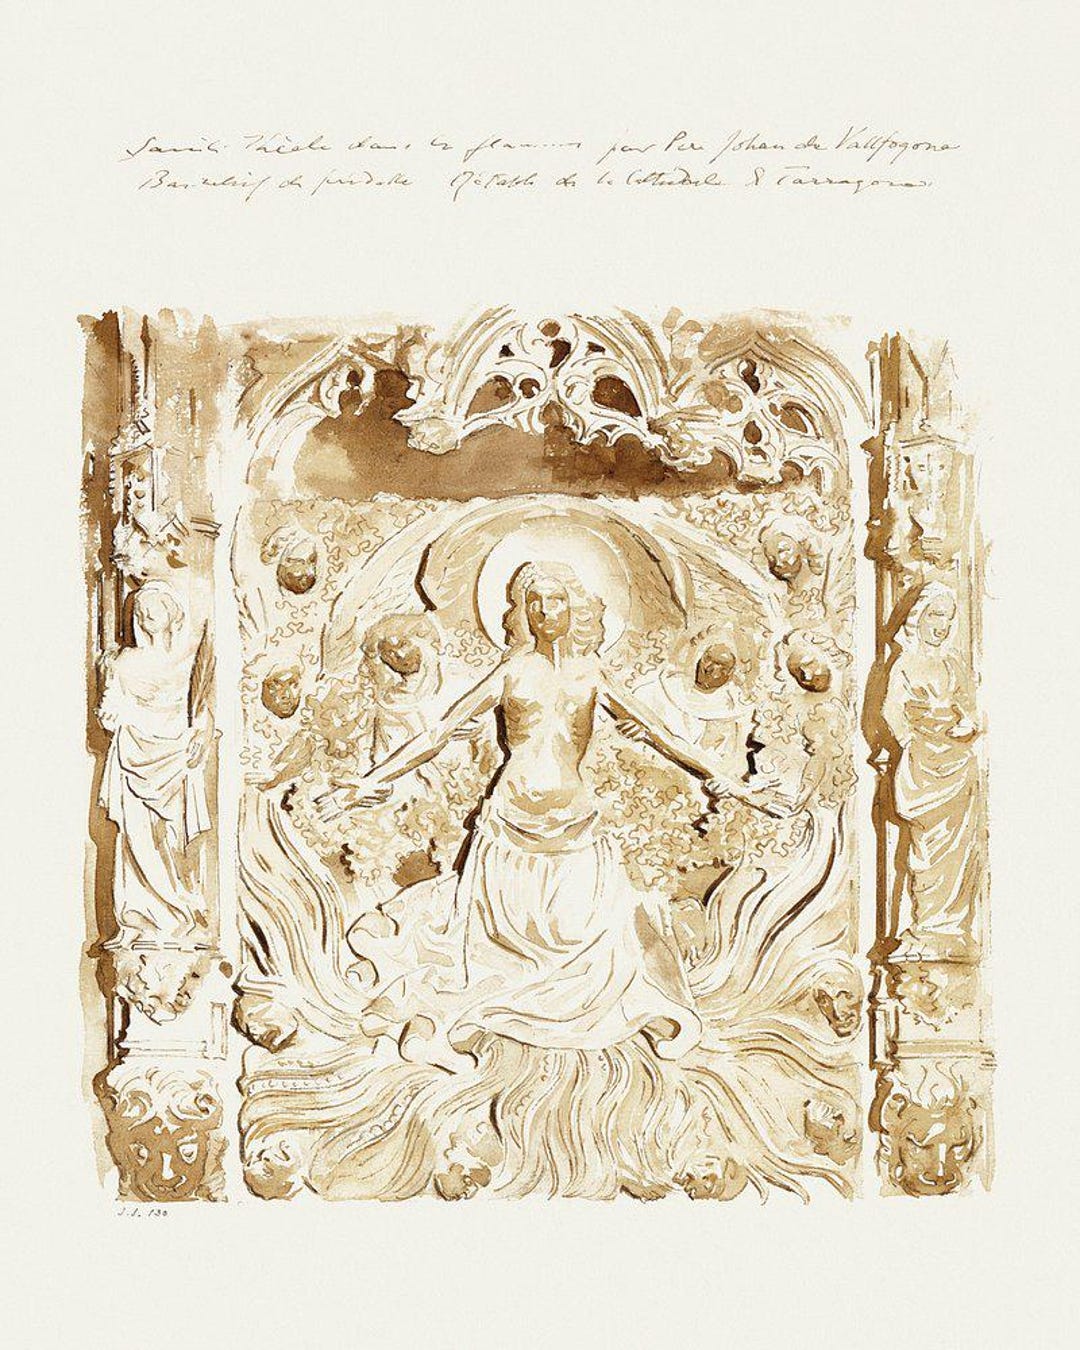 Sainte Thècle dans les flammes par Pere Johan de Vallfogona
Bas-relief de prédelle Rétable de la Cathédrale de Tarragona
J.J. 130